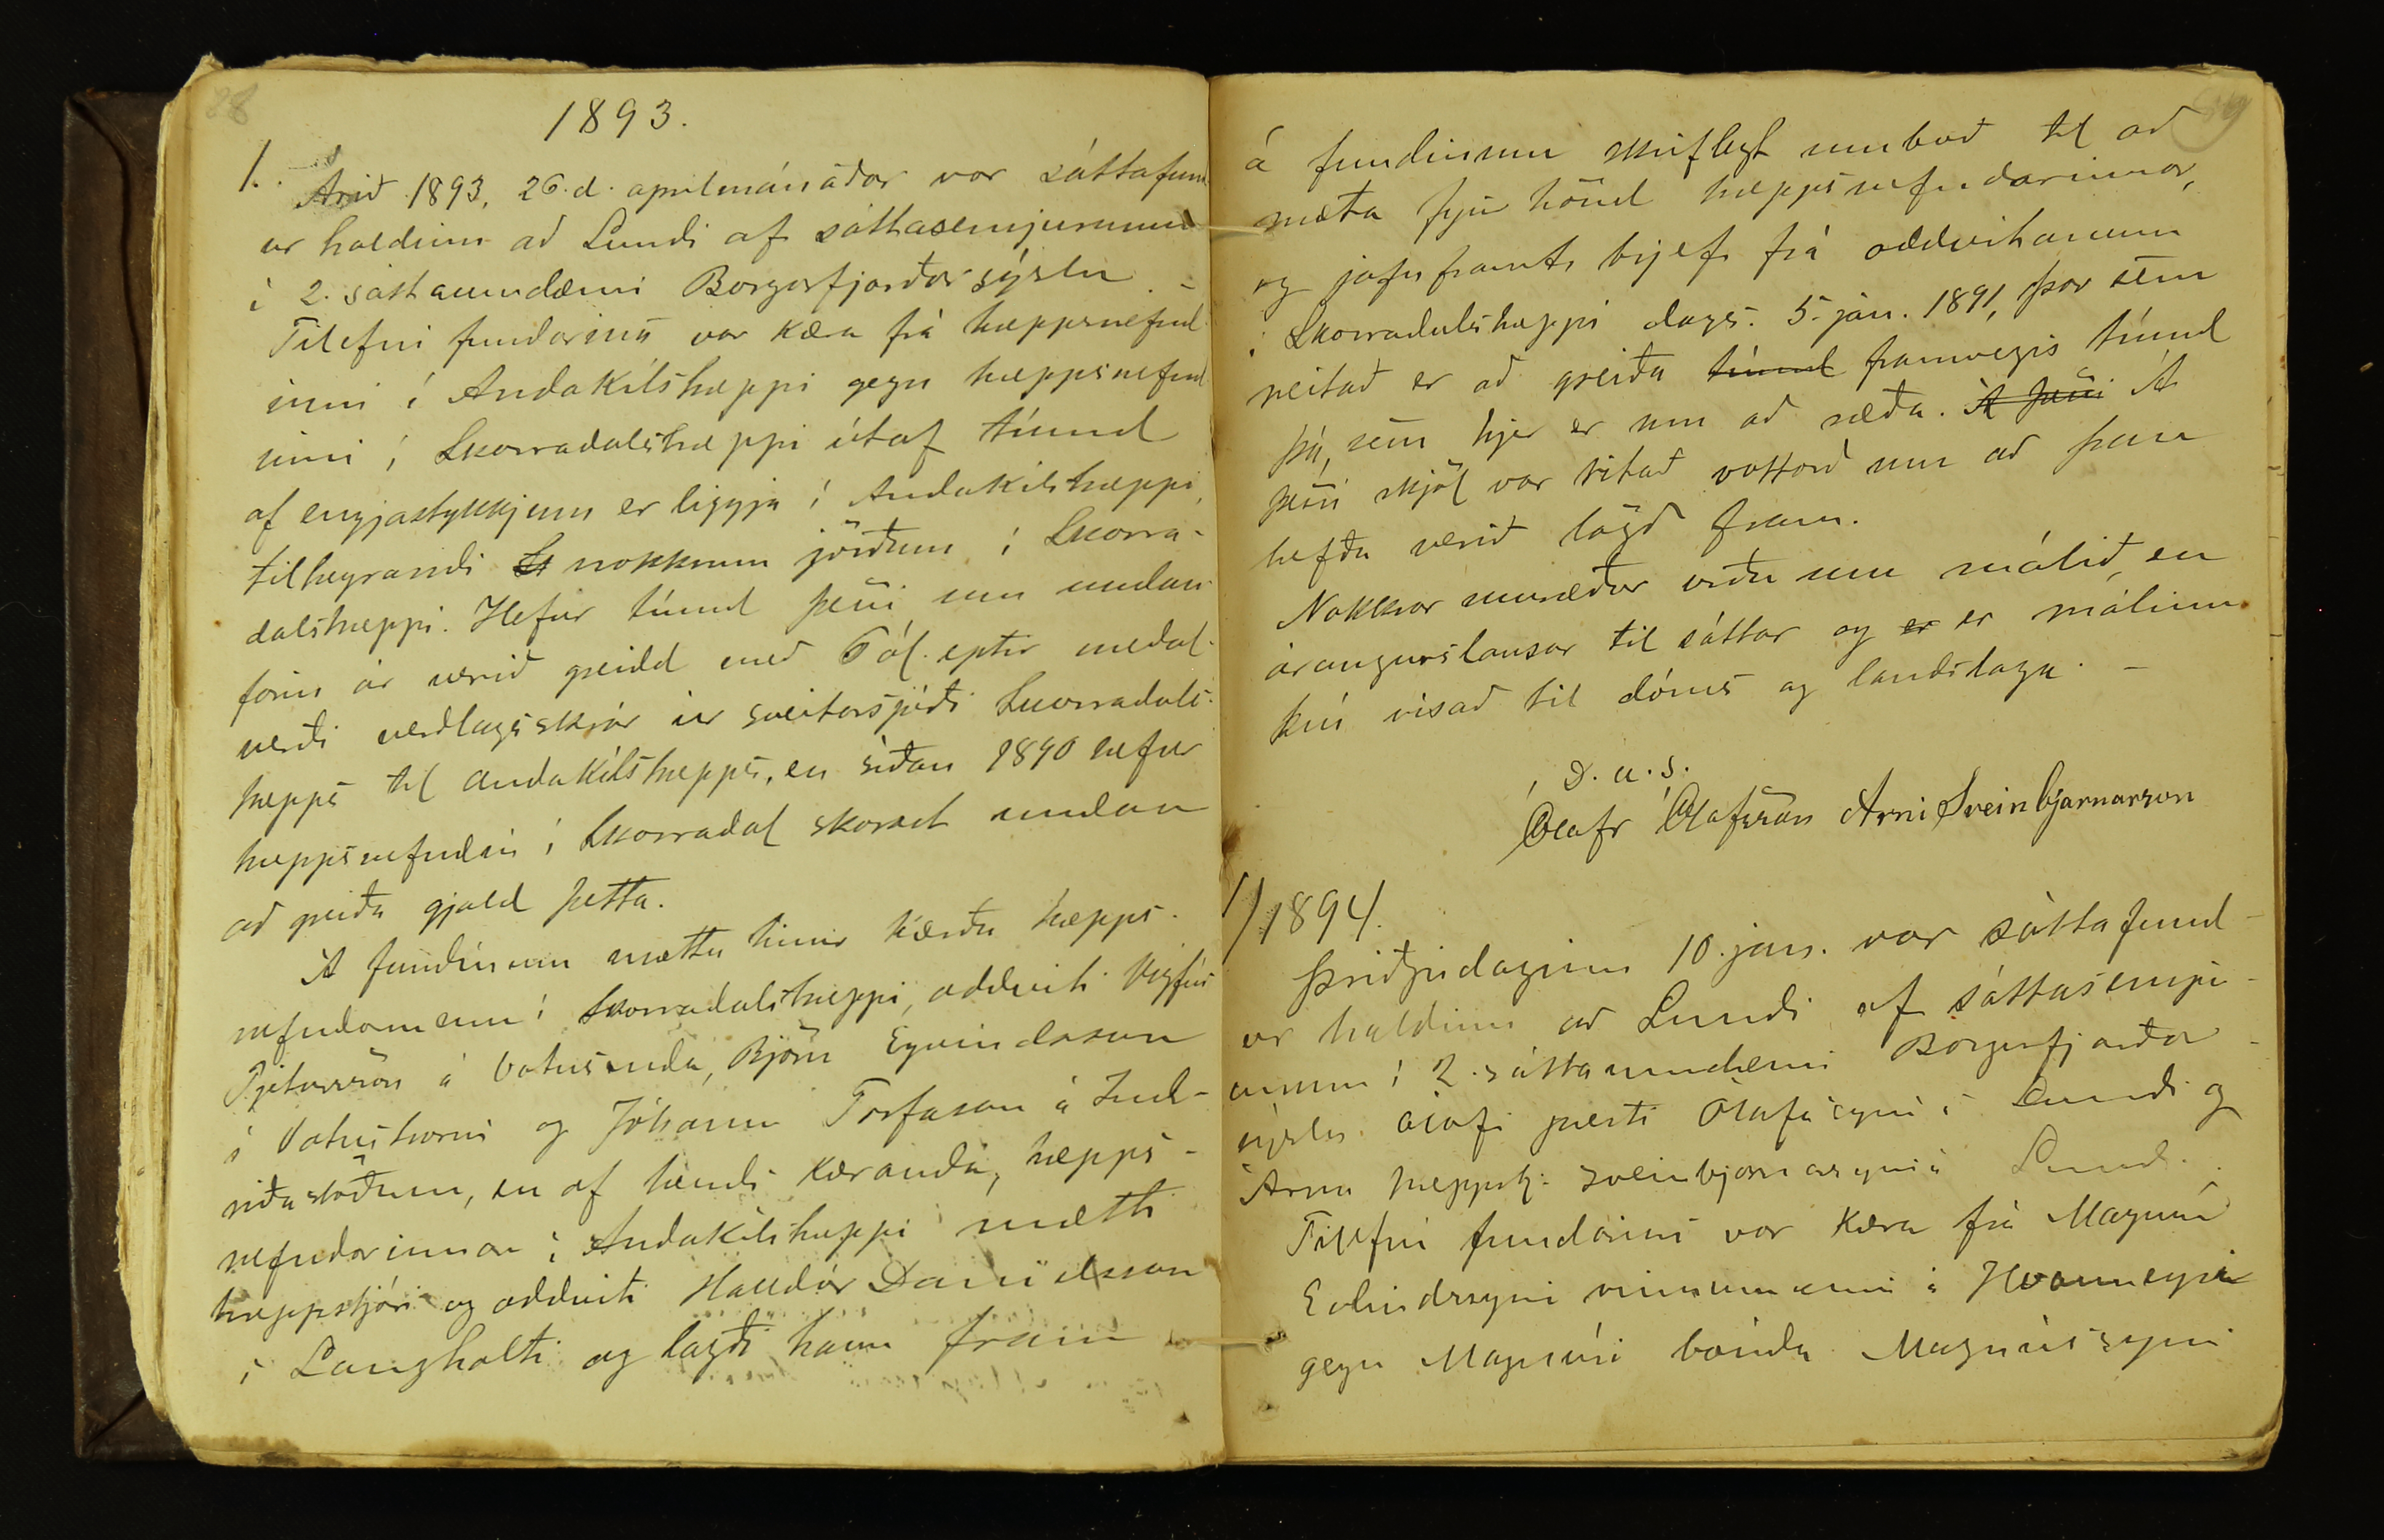 28
1893.
1. Árið 1893, 26. d. aprilmánaðar var sáttafund
ur haldinn að Lundi af sáttasemjurunum
í 2. sáttaumdæmi Borgarfjarðarsýslu. –
Tilefni fundarins var kæra frá hreppsnefnd
inni í Andakílshreppi gegn hreppsnefnd
inni í Skorradalshreppi útaf tíund
af engjastykkjum er liggja í Andakílshreppi,
tilheyrandi nokkrum jörðum í Skorra-
dalshreppi. Hefur tíund þessi um undan
farin ár verið greidd með 6 ál. eptir meðal-
verði verðlagsskrár úr sveitarsjóði Skorradals-
hrepps til Andakílshrepps, en síðan 1890 hefur
hreppsnefndin í Skorradal skorast undan
að greiða gjald þetta.
Á fundinum mættu hinir kærðu hrepps-
nefndarmenn í Skorradalshreppi, oddviti Vigfús
Pjetursson á Vatnsenda, Björn Eyvindsson
í Vatnshorni og Jóhann Torfason á Ind-
riðastöðum, en af hendi kæranda, hrepps-
nefndarinnar í Andakílshreppi mætti
hreppstjóri og oddviti Halldór Daníelsson
í Langholti og lagði hann fram
á fundinum skriflegt umboð til að
mæta fyrir hönd hreppsnefndarinnar,
og jafnframt brjef frá oddvitanum
í Skorradalshreppi dags. 5. jan. 1891, þar sem
neitað er að greiða tíund framvegis tíund
þá, sem hjer er um að ræða. Á þessi Á
þessi skjöl var ritað vottorð um að þau
hefðu verið lögð fram.
Nokkrar umræður urðu um málið, en
árangurslausar til sáttar og er er málinu
því vísað til dóms og landslaga. –
D. u. s.
Ólafr Ólafsson Árni Sveinbjarnarson
1/ 1894.
Þriðjudaginn 10. jan. var sáttafund-
ur haldinn að Lundi af sáttasemjur-
unum í 2. sáttaumdæmi Borgarfjarðar-
sýslu Ólafi presti Ólafssyni í Lundi og
Árna hreppstj. Sveinbjarnarsyni
Tilefni fundarins var kæra frá Magnúsi
Eyvindssyni vinnumanni á Hvanneyri
gegn Magnúsi bónda Magnússyni